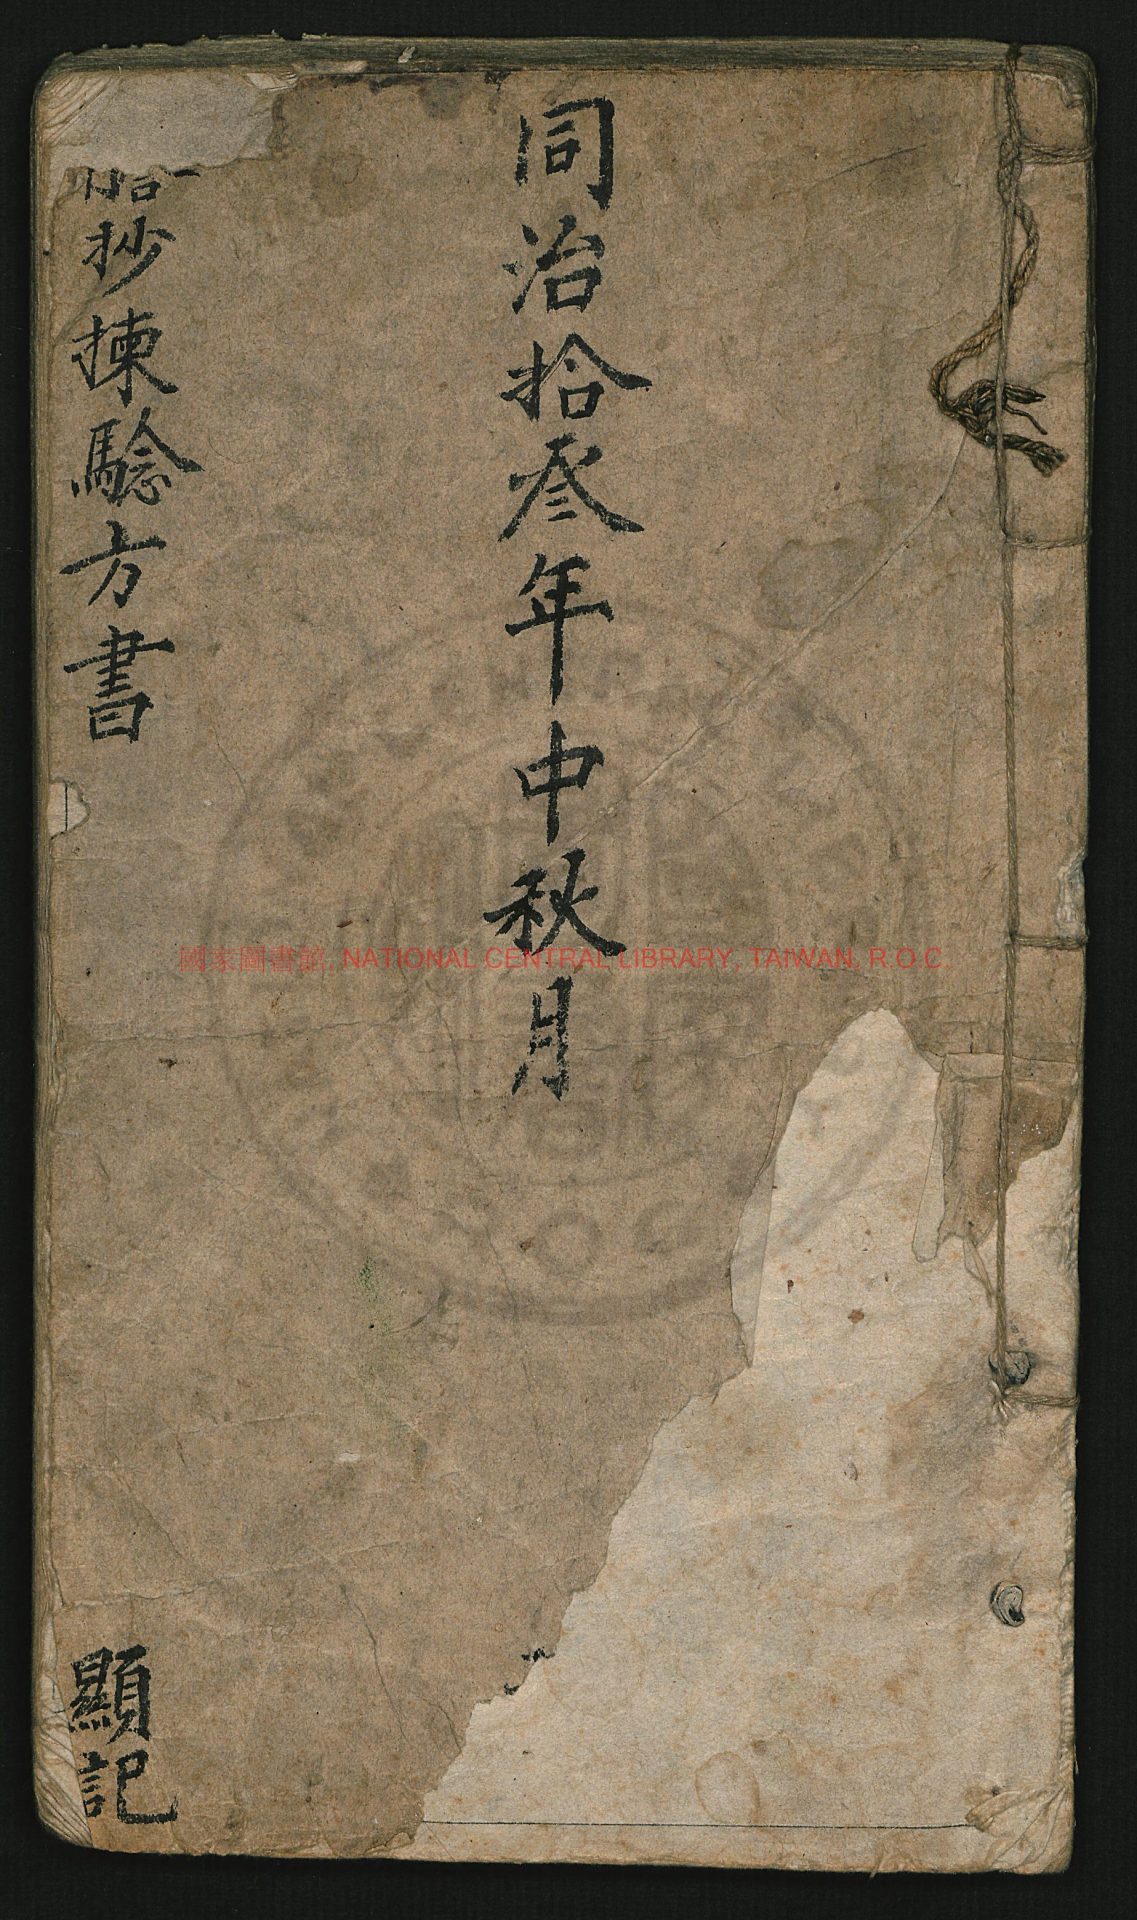 同治拾叄年中秋月
抄揀騐方書
顯記
國家圖書館, NATIONAL CENTRAL LIBRARY, TAIWAN, R.O.C.